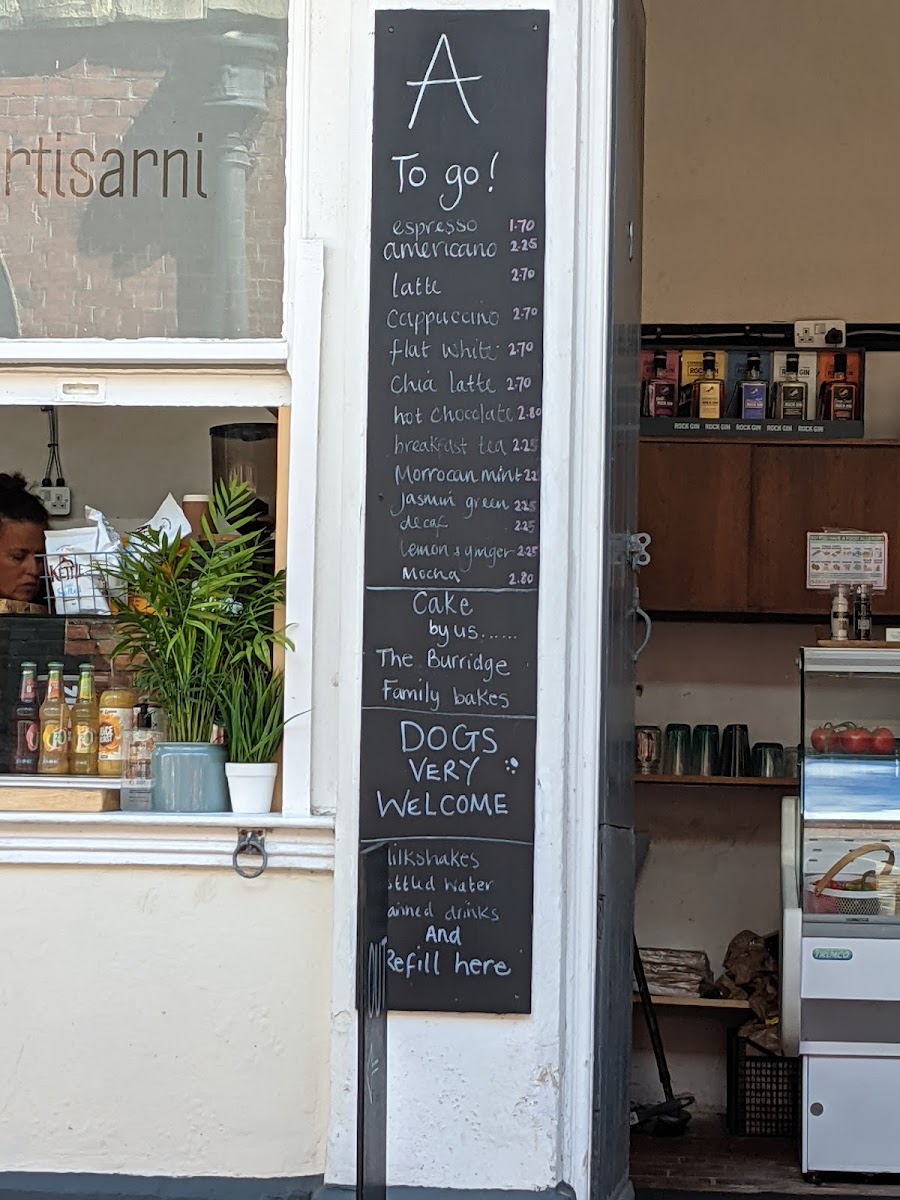 rtisarni
A
To go!
espresso 1.70
americano 2.25
latte 2.70
cappuccino 2.70
flat white 2.70
chia latte 2.70
hot chocolate 2.80
breakfast tea 2.25
Morrocan mint 22
Jasmin green 2.25
decaf 2.25
lemon & ginger 2.25
Mocha 2.80
Cake
by us......
The Burridge
Family bakes
DOGS
VERY
WELCOME
ilkshakes
ottled water
anned drinks
And
Refill here
OUT
KETTLE
ROCK GIN ROCK GIN ROCK GIN ROCK GIN ROCK GIN
TRIMCO